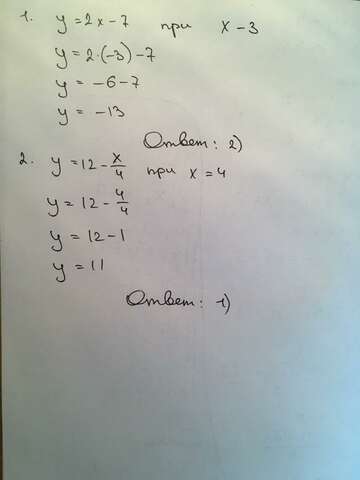 1. y = 2x - 7 при x - 3
y = 2·(-3) - 7
y = -6 - 7
y = -13
Ответ: 2)
2. y = 12 - x/4 при x = 4
y = 12 - 4/4
y = 12 - 1
y = 11
Ответ: 1)